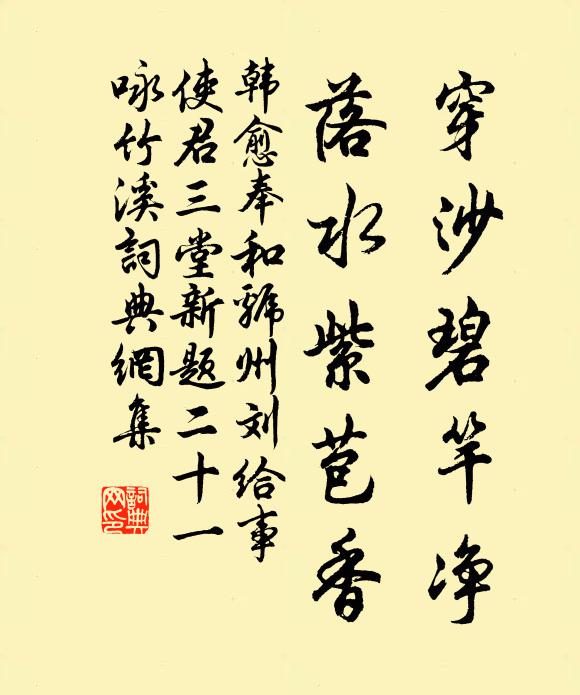 穿沙碧竿净
落水紫苞香
韩愈奉和虢州刘给事
使君三堂新题二十一
咏竹溪詞典網集
詞典
网印